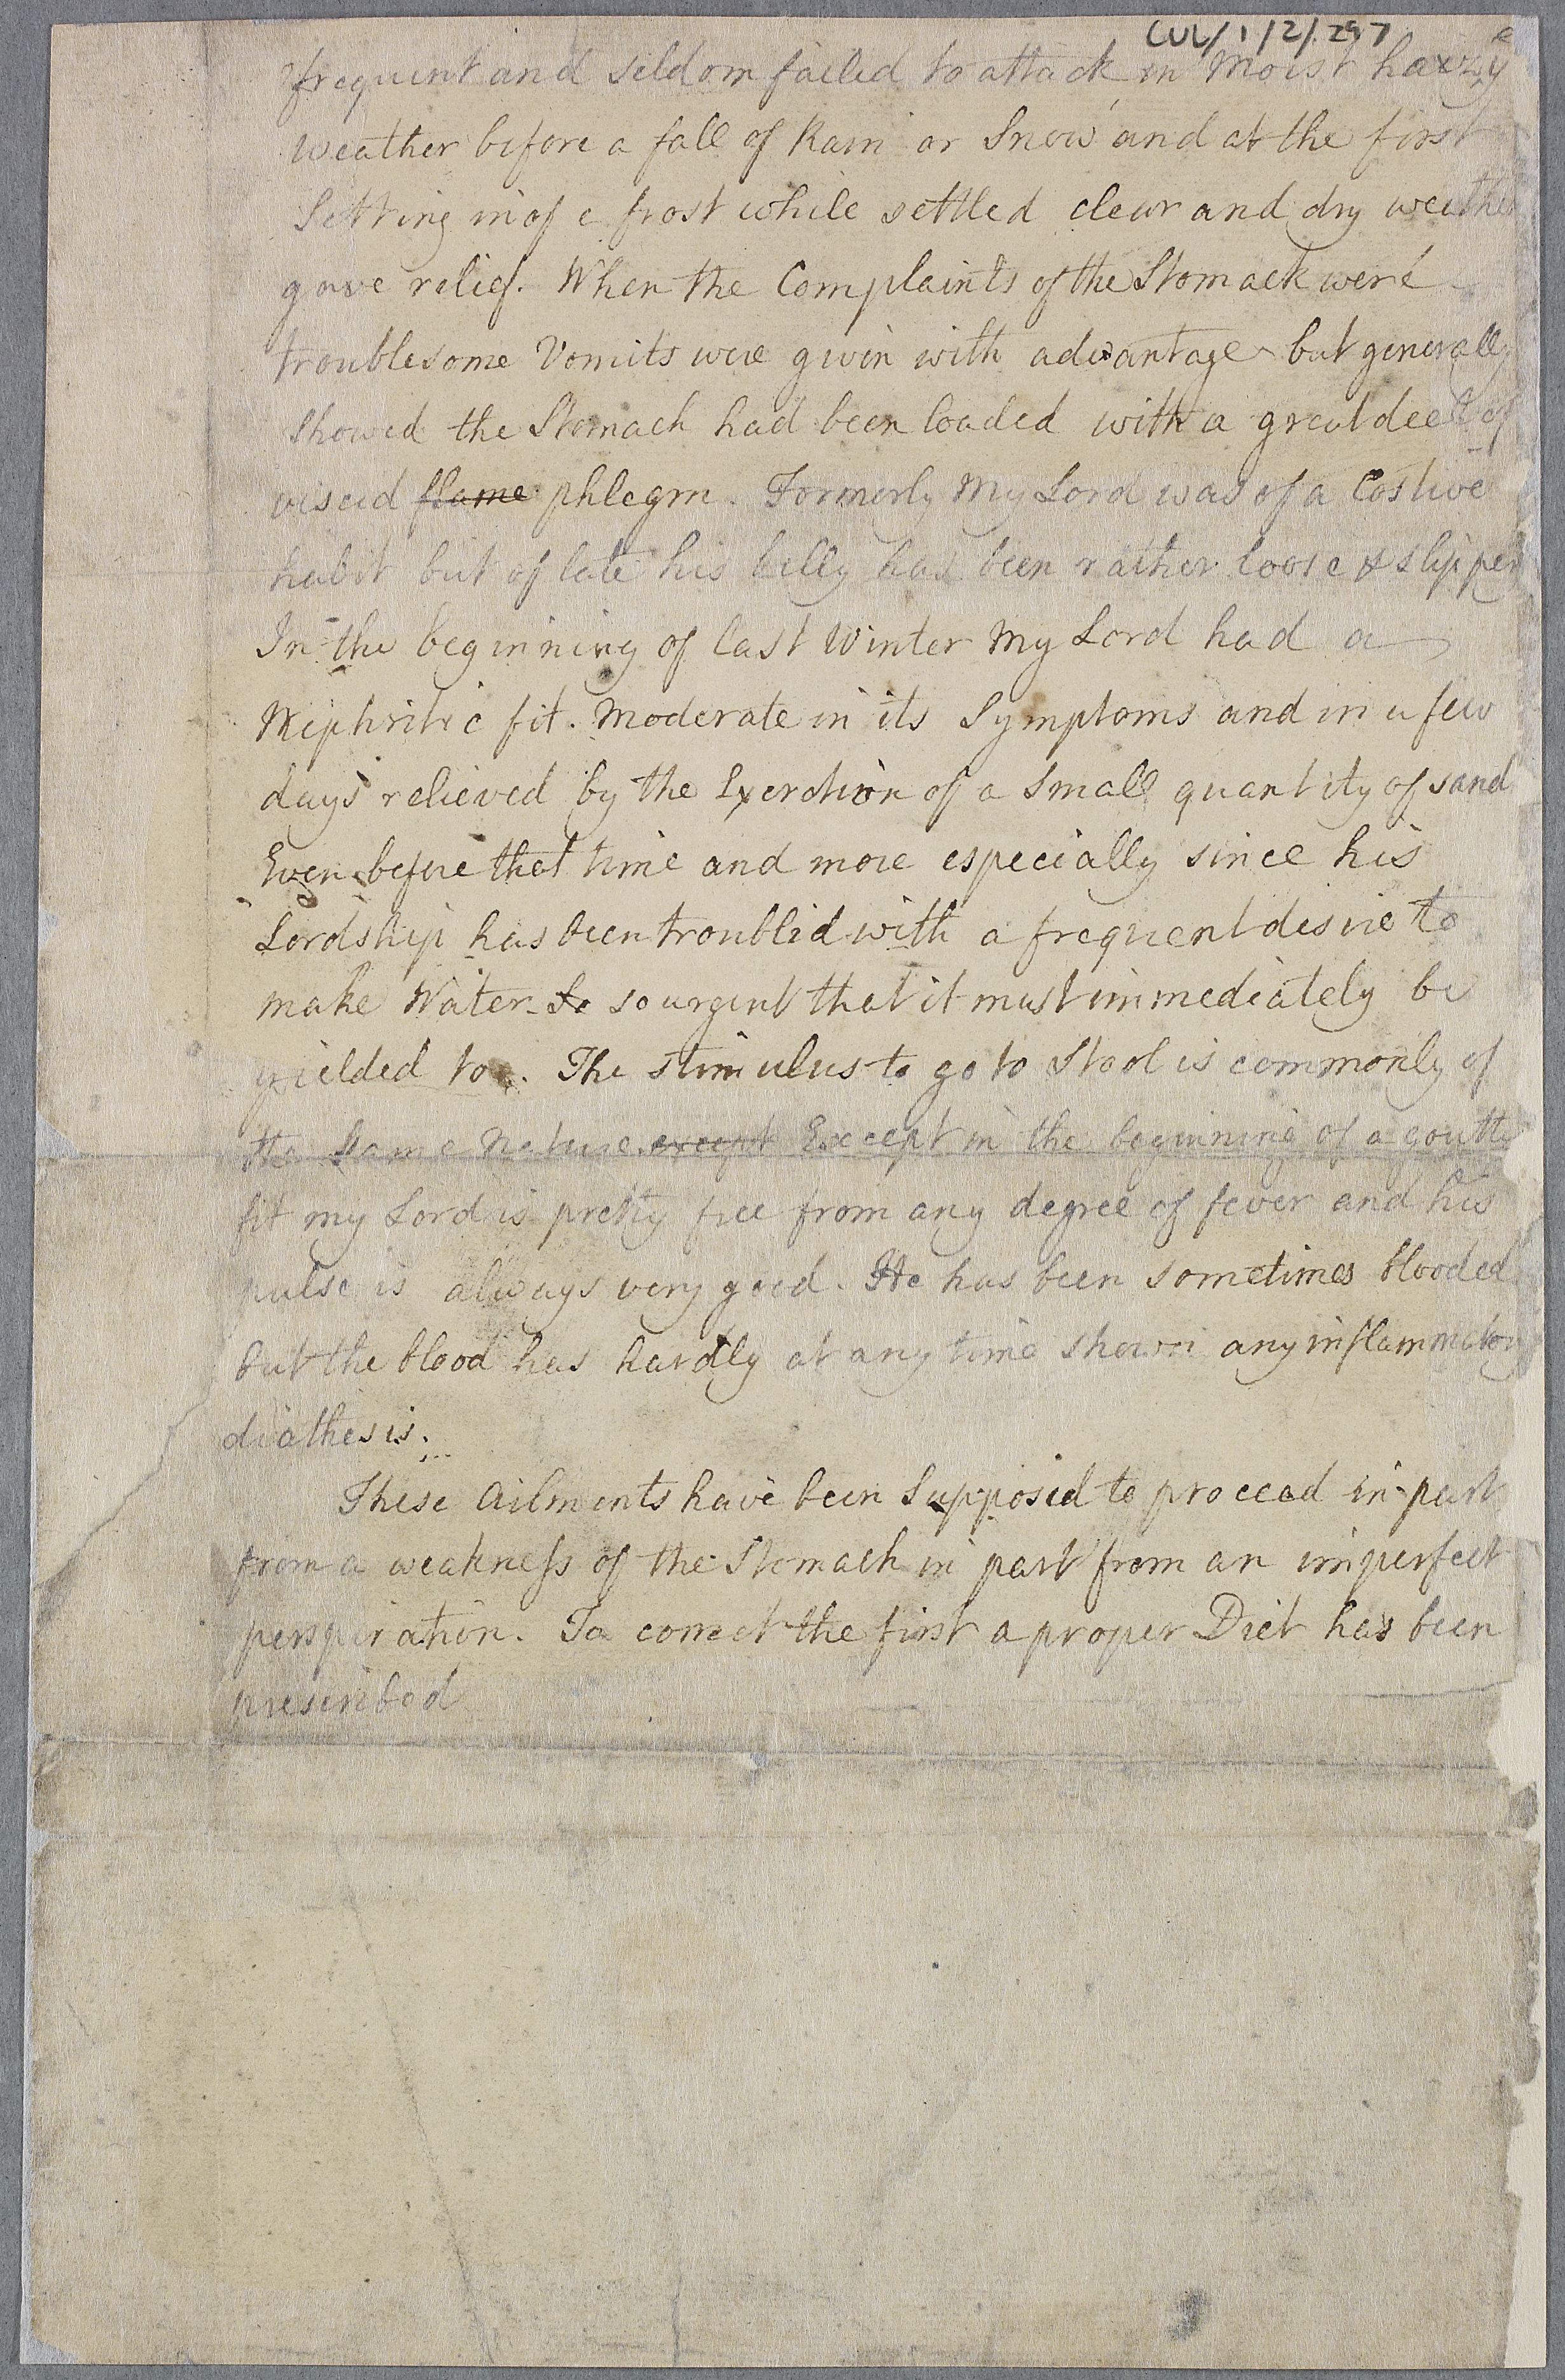 CUL/1/2/297
frequent and seldom failed to attack in Moist hazy
weather before a fall of Rain or Snow and at the first
Setting in of a frost while settled clear and dry weather
gave relief. When the Complaints of the Stomack were
troublesome Vomits were given with advantage but generally
showed the Stomach had been loaded with a great deel of
viscid flame phlegm. Formerly My Lord was of a Costive
habit but of late his belly has been rather loose & slipper
In the beginning of last Winter My Lord had a
Nephritic fit. Moderate in its Symptoms and in a few
days relieved by the Exerction of a Small quantity of sand
Even before that time and more especially since his
Lordship has been troubled with a frequent desire to
make Water So so urgent that it must immediately be
yielded to. The stimulus to go to Stool is commonly of
the same Nature except Except in the beginning of a goutty
fit my Lord is pretty free from any degree of fever and his
pulse is always very good. He has been sometimes blooded
but the blood has hardly at any time shown any inflammatory
diathesis.
These Ailments have been Supposed to proceed in part
from a weakness of the Stomach in part from an imperfect
perspiration. To correct the first a proper Diet has been
prescribed